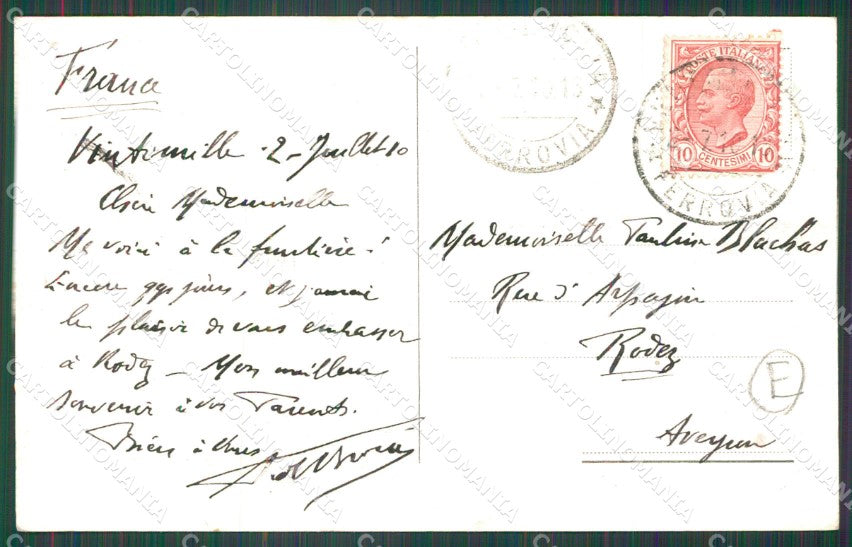 France
Vintimille 2 - Juillet 10
Chère Mademoiselle
Me voici à la frontière!
Encore qqs jours, et j'aurai
le plaisir de vous embrasser
à Rodez - Mon meilleur
Souvenir à vos Parents.
Bien à vous
POSTE ITALIANE
10 CENTESIMI 10
FERROVIA
FERROVIA
Mademoiselle Pauline Blachas
Rue d'Arpajon
Rodez
Aveyron
E
CARTOLINOMANIA